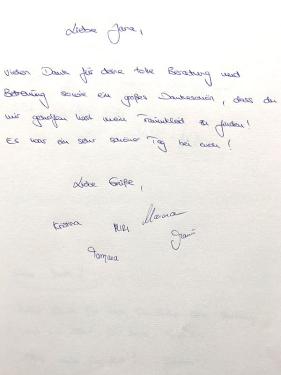 Liebe Jana,
vielen Dank für deine tolle Beratung und
Betreuung sowie ein großes Dankeschön, dass du
mir geholfen hast mein Traumkleid zu finden!
Es war ein sehr schöner Tag bei euch!
Liebe Grüße,
MIRI
Tamara